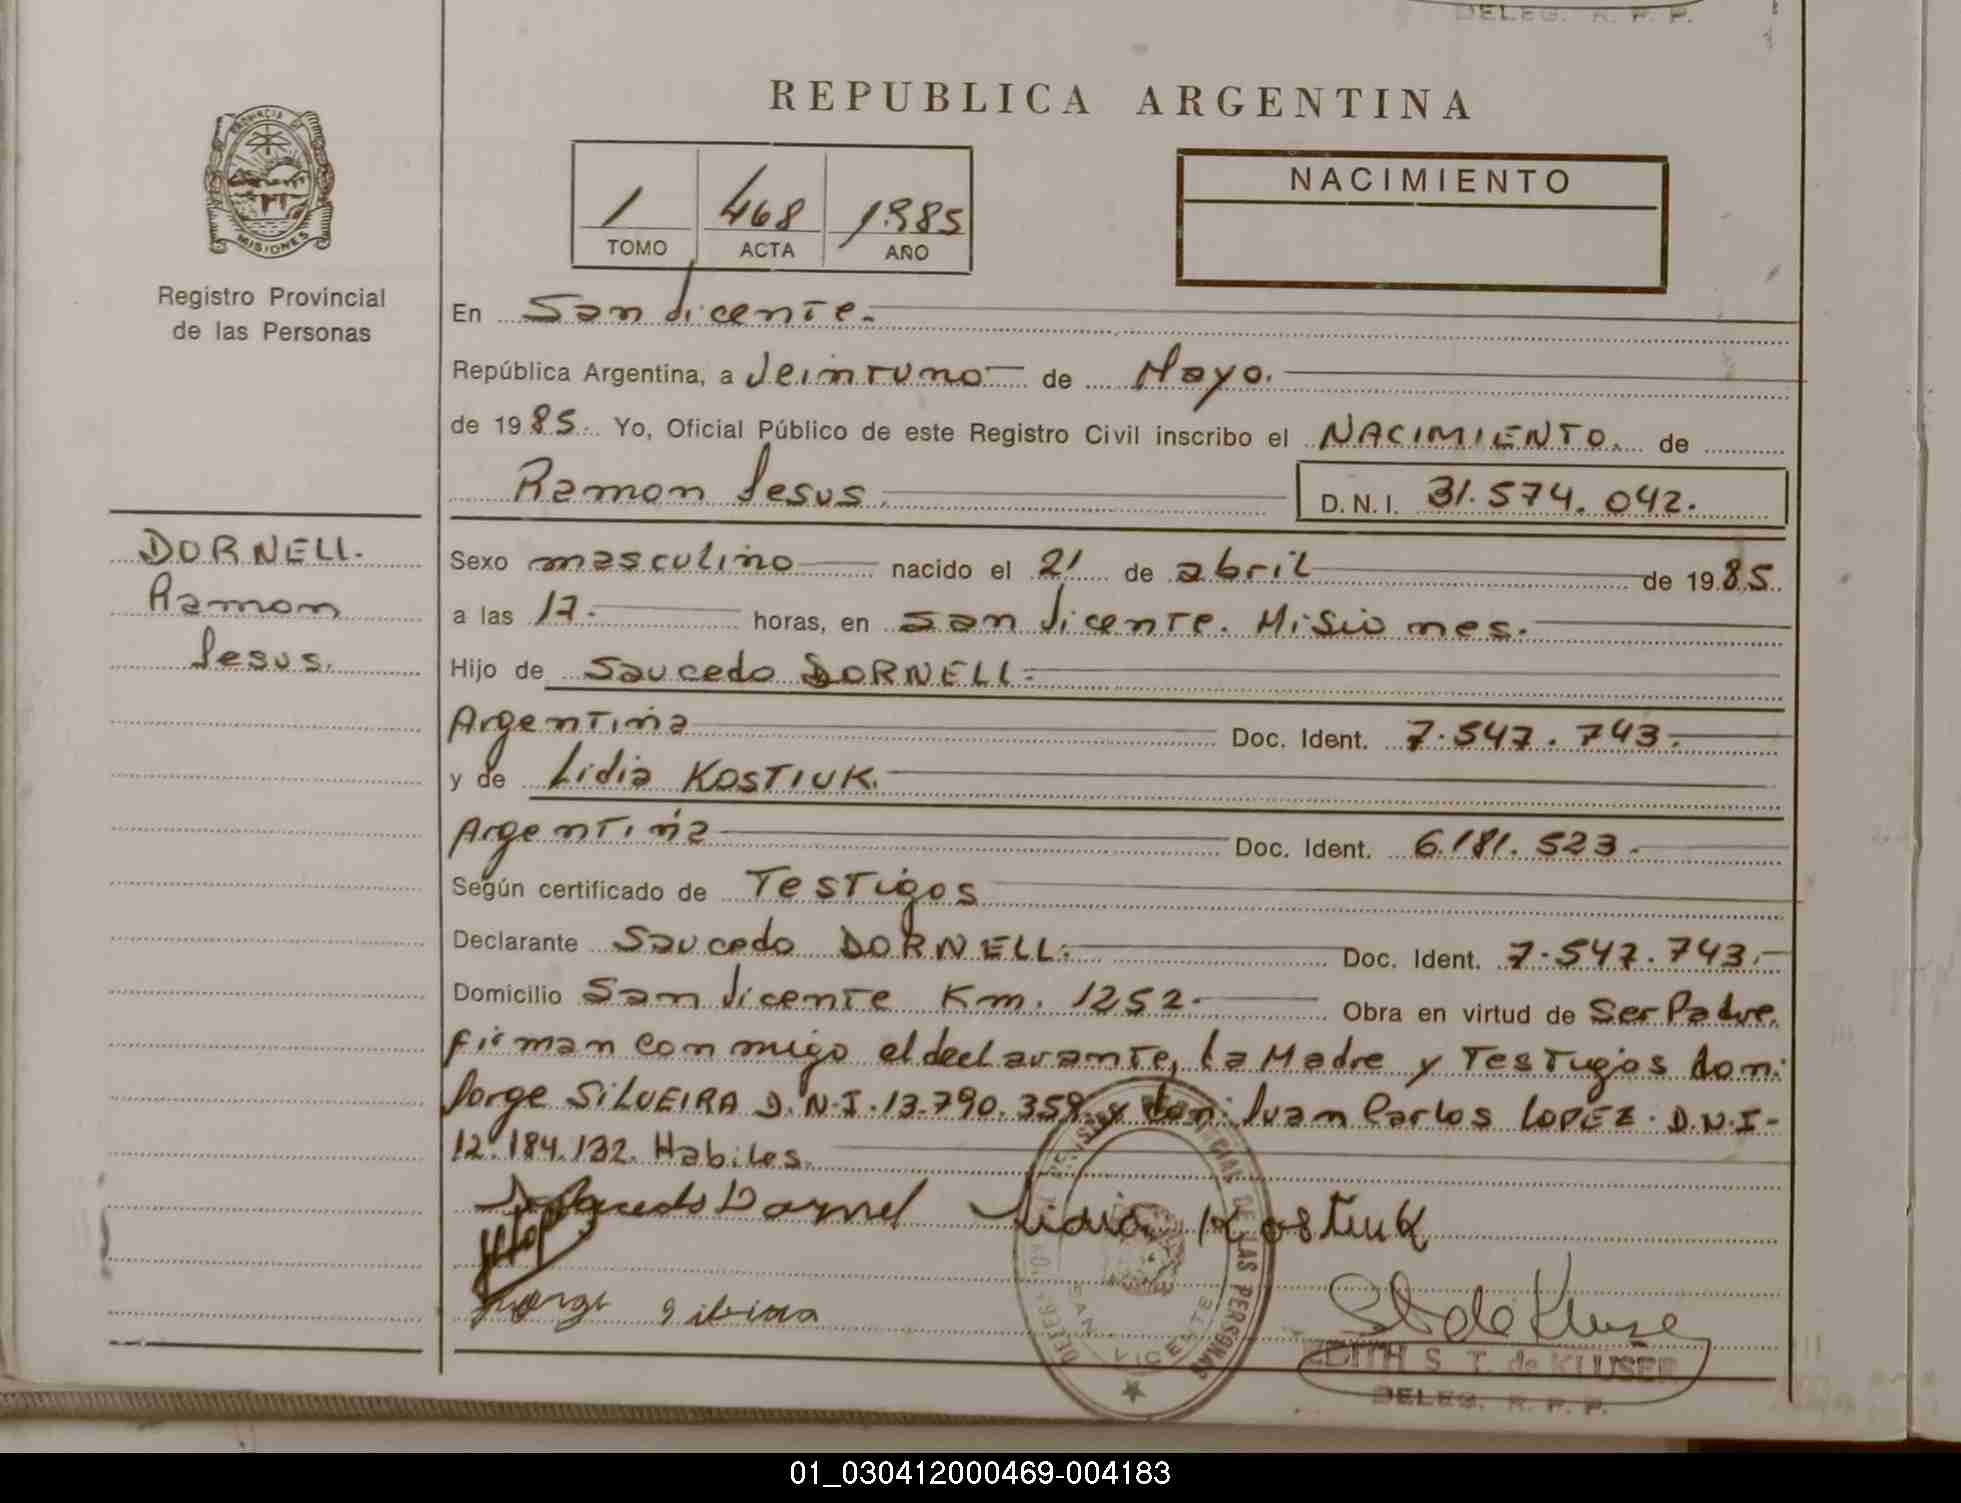 DELEG. R. P. P.
REPUBLICA ARGENTINA
PROVINCIA DE
MISIONES
Registro Provincial
de las Personas
1 468 1985
TOMO ACTA AÑO
NACIMIENTO
En San Vicente.
República Argentina, a Veintuno de Mayo.
de 1985. Yo, Oficial Público de este Registro Civil inscribo el NACIMIENTO. de
Ramon Jesus. D.N.I. 31.574.042.
DORNELL.
Ramon
Jesus.
Sexo masculino nacido el 21 de abril de 1985.
a las 17. horas, en San Vicente. Misiones.
Hijo de Saucedo DORNELL.
Argentina Doc. Ident. 7.547.743.
y de Lidia KOSTIUK.
Argentina Doc. Ident. 6.181.523.
Según certificado de Testigos
Declarante Saucedo DORNELL. Doc. Ident. 7.547.743.
Domicilio San Vicente Km. 1252. Obra en virtud de Ser Padre.
firman con migo el declarante, la Madre y Testigos don:
Jorge SILVEIRA D.N.I. 13.790.359 y don: Juan Carlos LOPEZ. D.N.I-
12.184.132. Habiles.
Saucedo Dornel Lidia Kostiuk
Jorge
DELEG. REGISTRO PROVINCIAL DE LAS PERSONAS
SAN VICENTE
EDITH S. T. de KLUSER
DELEG. R. P. P.
01_030412000469-004183